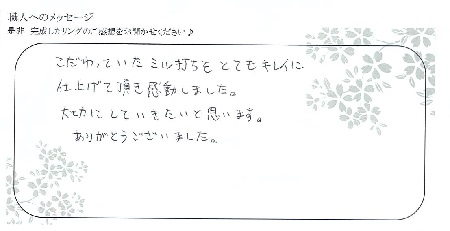 職人へのメッセージ
是非 完成したリングのご感想をお聞かせください♪
こだわっていたミル打ちもとてもキレイに
仕上げて頂き感動しました。
大切にしていきたいと思います。
ありがとうございました。